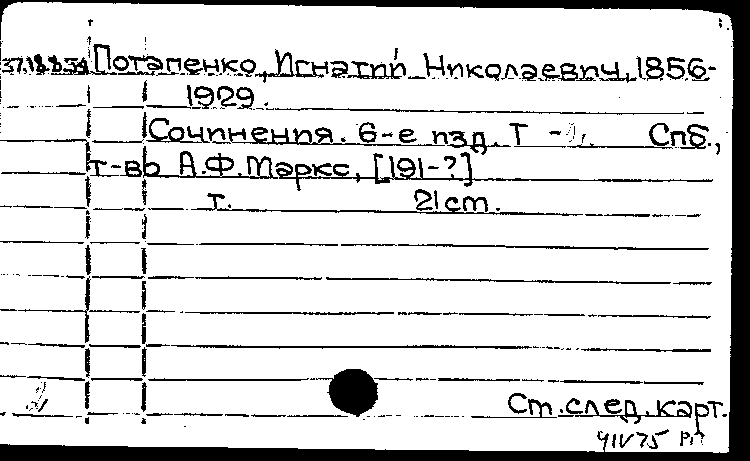 37.18.8.34 Потапенко, Игнатий Николаевич, 1856-
1929.
Сочинения. 6-е изд. Т -2. Спб.,
т-во А.Ф.Маркс, [191-?]
т. 21cm.
2
Ст.след.карт.